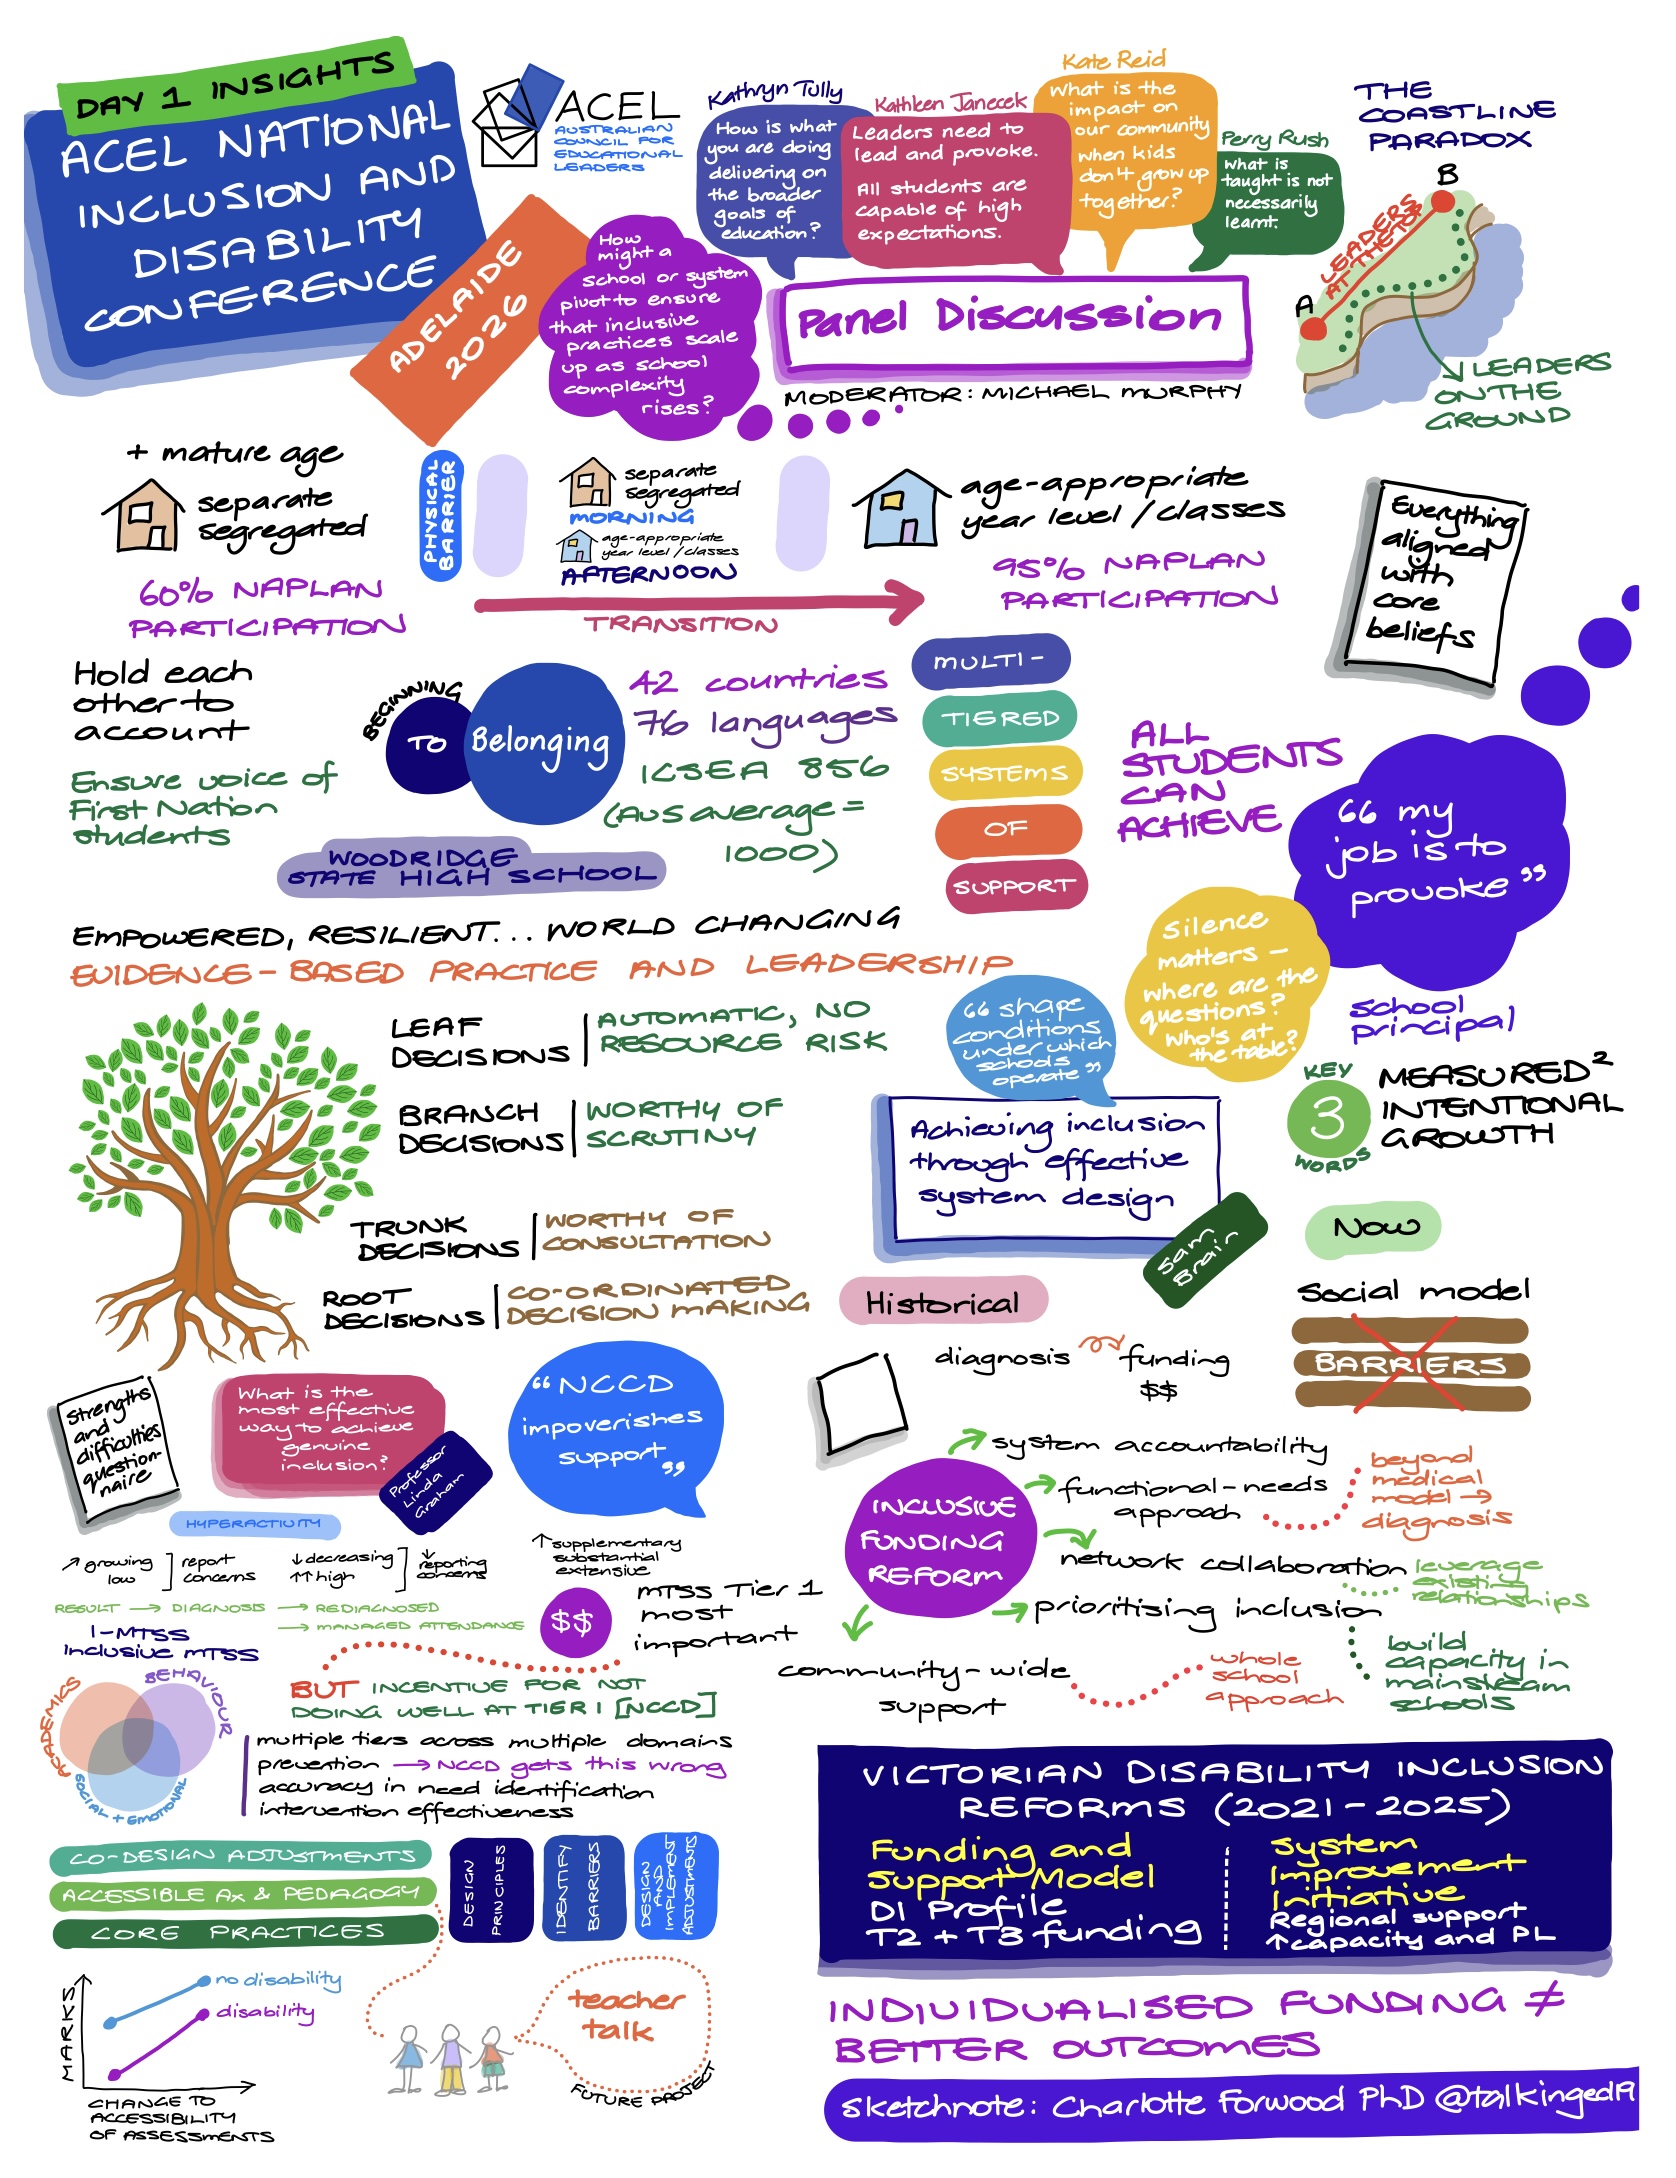 DAY 1 INSIGHTS
ACEL NATIONAL
INCLUSION AND
DISABILITY
CONFERENCE
ADELAIDE
2026
ACEL
AUSTRALIAN
COUNCIL FOR
EDUCATIONAL
LEADERS
How
might a
school or system
pivot to ensure
that inclusive
practices scale
up as school
complexity
rises?
Kathryn Tully
How is what
you are doing
delivering on
the broader
goals of
education?
Kathleen Janecek
Leaders need to
lead and provoke.
All students are
capable of high
expectations.
Kate Reid
What is the
impact on
our community
when kids
don't grow up
together?
Perry Rush
What is
taught is not
necessarily
learnt.
Panel Discussion
MODERATOR: MICHAEL MURPHY
THE
COASTLINE
PARADOX
A
B
LEADERS
AT THE TOP
LEADERS
ON THE
GROUND
+ mature age
separate
segregated
60% NAPLAN
PARTICIPATION
PHYSICAL
BARRIER
separate
segregated
MORNING
age-appropriate
year level/classes
AFTERNOON
TRANSITION
age-appropriate
year level/classes
95% NAPLAN
PARTICIPATION
Everything
aligned
with
core
beliefs
Hold each
other to
account
Ensure voice of
First Nation
students
BEGINNING
TO
Belonging
42 countries
76 languages
ICSEA 856
(Aus average =
1000)
WOODRIDGE
STATE HIGH SCHOOL
MULTI-
TIERED
SYSTEMS
OF
SUPPORT
ALL
STUDENTS
CAN
ACHIEVE
“my
job is to
provoke”
school
principal
EMPOWERED, RESILIENT... WORLD CHANGING
EVIDENCE-BASED PRACTICE AND LEADERSHIP
LEAF
DECISIONS
AUTOMATIC, NO
RESOURCE RISK
BRANCH
DECISIONS
WORTHY OF
SCRUTINY
TRUNK
DECISIONS
WORTHY OF
CONSULTATION
ROOT
DECISIONS
CO-ORDINATED
DECISION MAKING
“shape
conditions
under which
schools
operate”
Silence
matters -
where are the
questions?
Who's at
the table?
Achieving inclusion
through effective
system design
Sam
Brain
KEY
3
WORDS
MEASURED²
INTENTIONAL
GROWTH
Historical
diagnosis
funding
$$
Now
Social model
BARRIERS
Strengths
and
difficulties
question-
naire
What is the
most effective
way to achieve
genuine
inclusion?
Professor
Linda
Graham
“NCCD
impoverishes
support”
HYPERACTIVITY
↗ growing
low
report
concerns
↓ decreasing
↑↑ high
↓
reporting
concerns
RESULT → DIAGNOSIS → REDIAGNOSED
→ MANAGED ATTENDANCE
↑ supplementary
substantial
extensive
$$
MTSS Tier 1
most
important
I-MTSS
Inclusive MTSS
ACADEMICS
BEHAVIOUR
SOCIAL + EMOTIONAL
BUT INCENTIVE FOR NOT
DOING WELL AT TIER 1 [NCCD]
multiple tiers across multiple domains
prevention → NCCD gets this wrong
accuracy in need identification
intervention effectiveness
INCLUSIVE
FUNDING
REFORM
system accountability
functional-needs
approach
beyond
medical
model →
diagnosis
network collaboration
leverage
existing
relationships
prioritising inclusion
build
capacity in
mainstream
schools
community-wide
support
whole
school
approach
CO-DESIGN ADJUSTMENTS
ACCESSIBLE Ax & PEDAGOGY
CORE PRACTICES
DESIGN
PRINCIPLES
IDENTIFY
BARRIERS
DESIGN
AND
IMPLEMENT
ADJUSTMENTS
MARKS
no disability
disability
CHANGE TO
ACCESSIBILITY
OF ASSESSMENTS
teacher
talk
FUTURE PROJECT
VICTORIAN DISABILITY INCLUSION
REFORMS (2021-2025)
Funding and
Support Model
DI Profile
T2 + T3 funding
System
Improvement
Initiative
Regional support
↑capacity and PL
INDIVIDUALISED FUNDING ≠
BETTER OUTCOMES
Sketchnote: Charlotte Forwood PhD @talkinged19